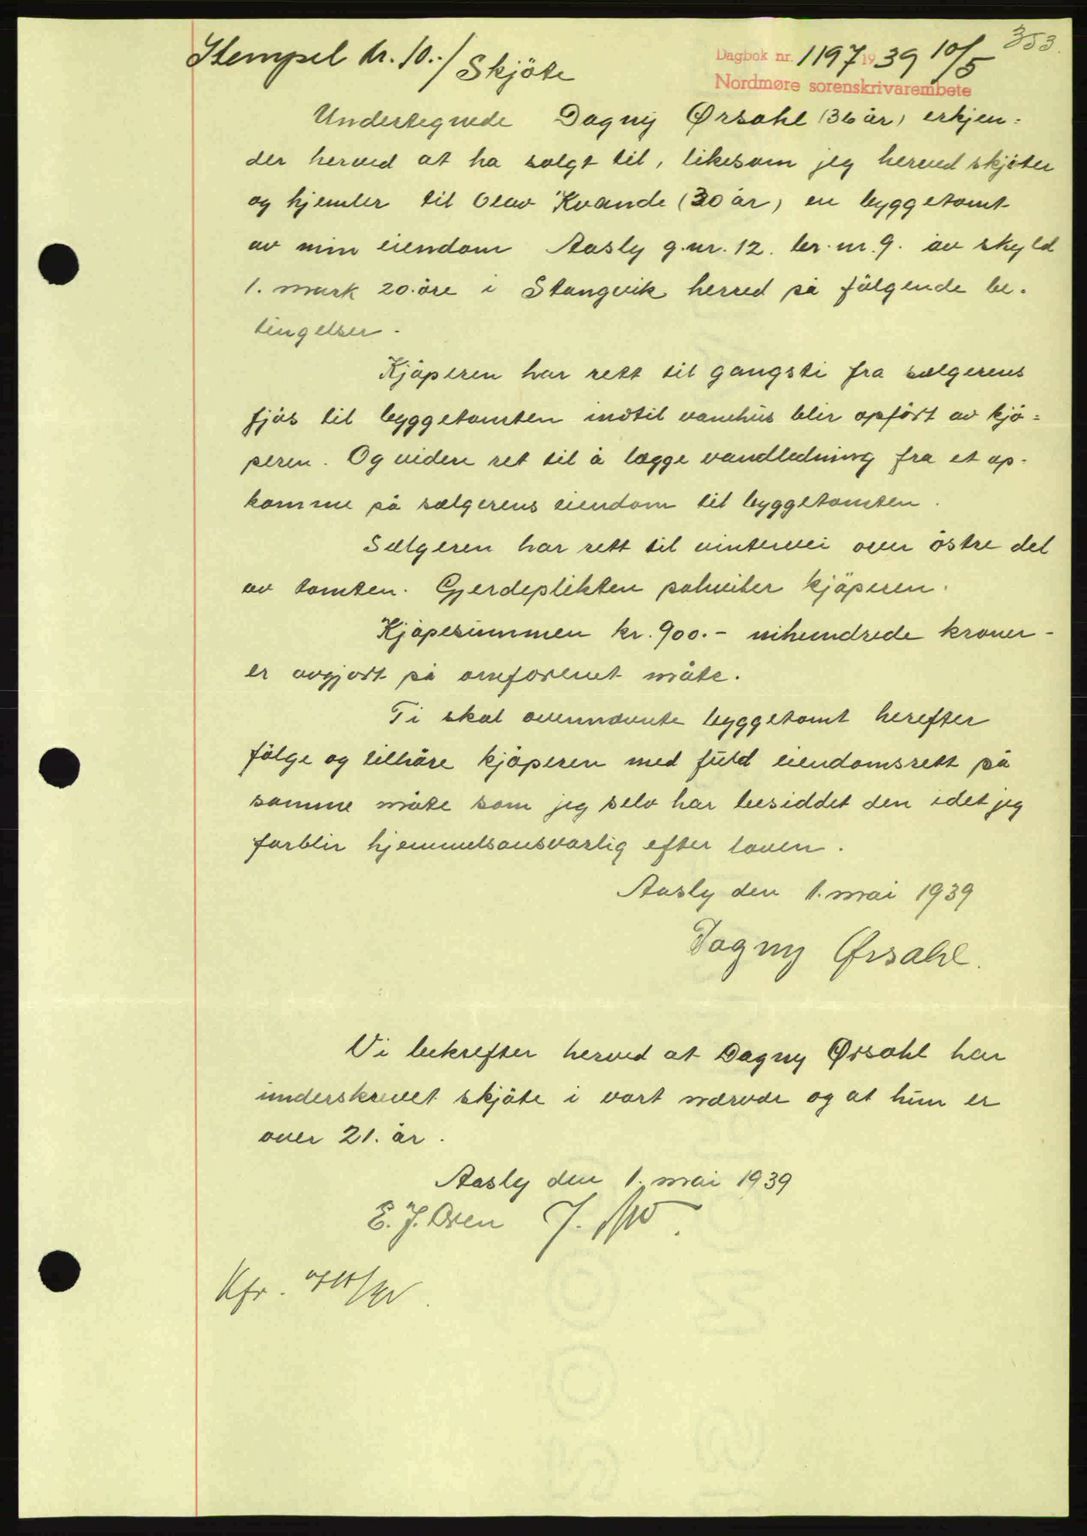 353.
Dagbok nr. 1197 1939 10/5
Nordmøre sorenskrivarembete
Stempel kr. 10.-/ Skjöte
Undertegnede Dagny Ørsahl (36 år) erkjen-
der herved at ha solgt til, likesom jeg herved skjöter
og hjemler til Olav Kvande (30 år) en byggetomt
av min eiendom Aasly g.nr. 12. br.nr. 9. av skyld
1. mark 20. øre i Stangvik herred på fölgende be-
tingelser.
Kjöperen har rett til gangsti fra sælgerens
fjös til byggetomten indtil vaanhus blir opfört av kjö-
peren. Og videre ret til å lægge vandledning fra et op-
komme på sælgerens eiendom til byggetomten.
Sælgeren har rett til vintervei over östre del
av tomten. Gjerdeplikten påhviler kjöperen.
Kjöpesummen kr. 900.- nihundrede kroner -
er avgjort på omforenet måte.
Ti skal ovennævnte byggetomt herefter
fölge og tilhöre kjöperen med fuld eiendomsrett på
samme måte som jeg selv har besiddet den idet jeg
forblir hjemmelsansvarlig efter loven.
Aasly den 1. mai 1939
Dagny Ørsahl.
Vi bekrefter herved at Dagny Ørsahl har
underskrevet skjöte i vort nærvær og at hun er
over 21. år.
Aasly den 1. mai 1939
E. J. Øren J.
Kfr.